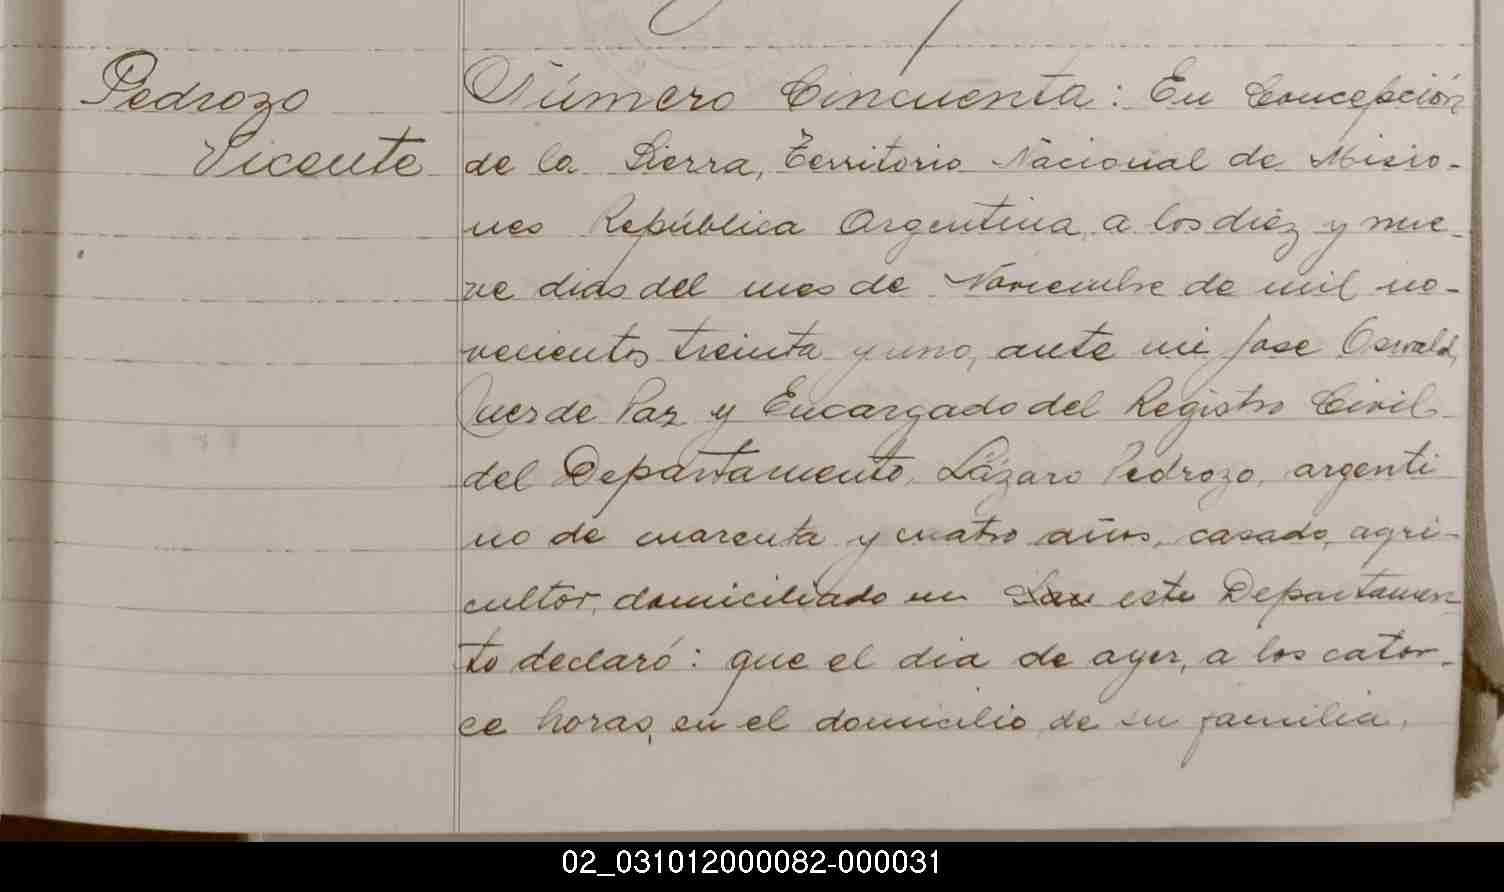 Pedrozo
Vicente
Número Cincuenta: En Concepción
de la Sierra, Territorio Nacional de Misio-
nes República Argentina, a los diez y nue-
ve dias del mes de Noviembre de mil no-
vecientos treinta y uno, ante mi José Oswald,
Juez de Paz y Encargado del Registro Civil
del Departamento, Lázaro Pedrozo, argenti
no de cuarenta y cuatro años, casado, agri-
cultor, domiciliado en este Departamen
to declaró: que el dia de ayer, a los cator-
ce horas, en el domicilio de su familia,
02_031012000082-000031